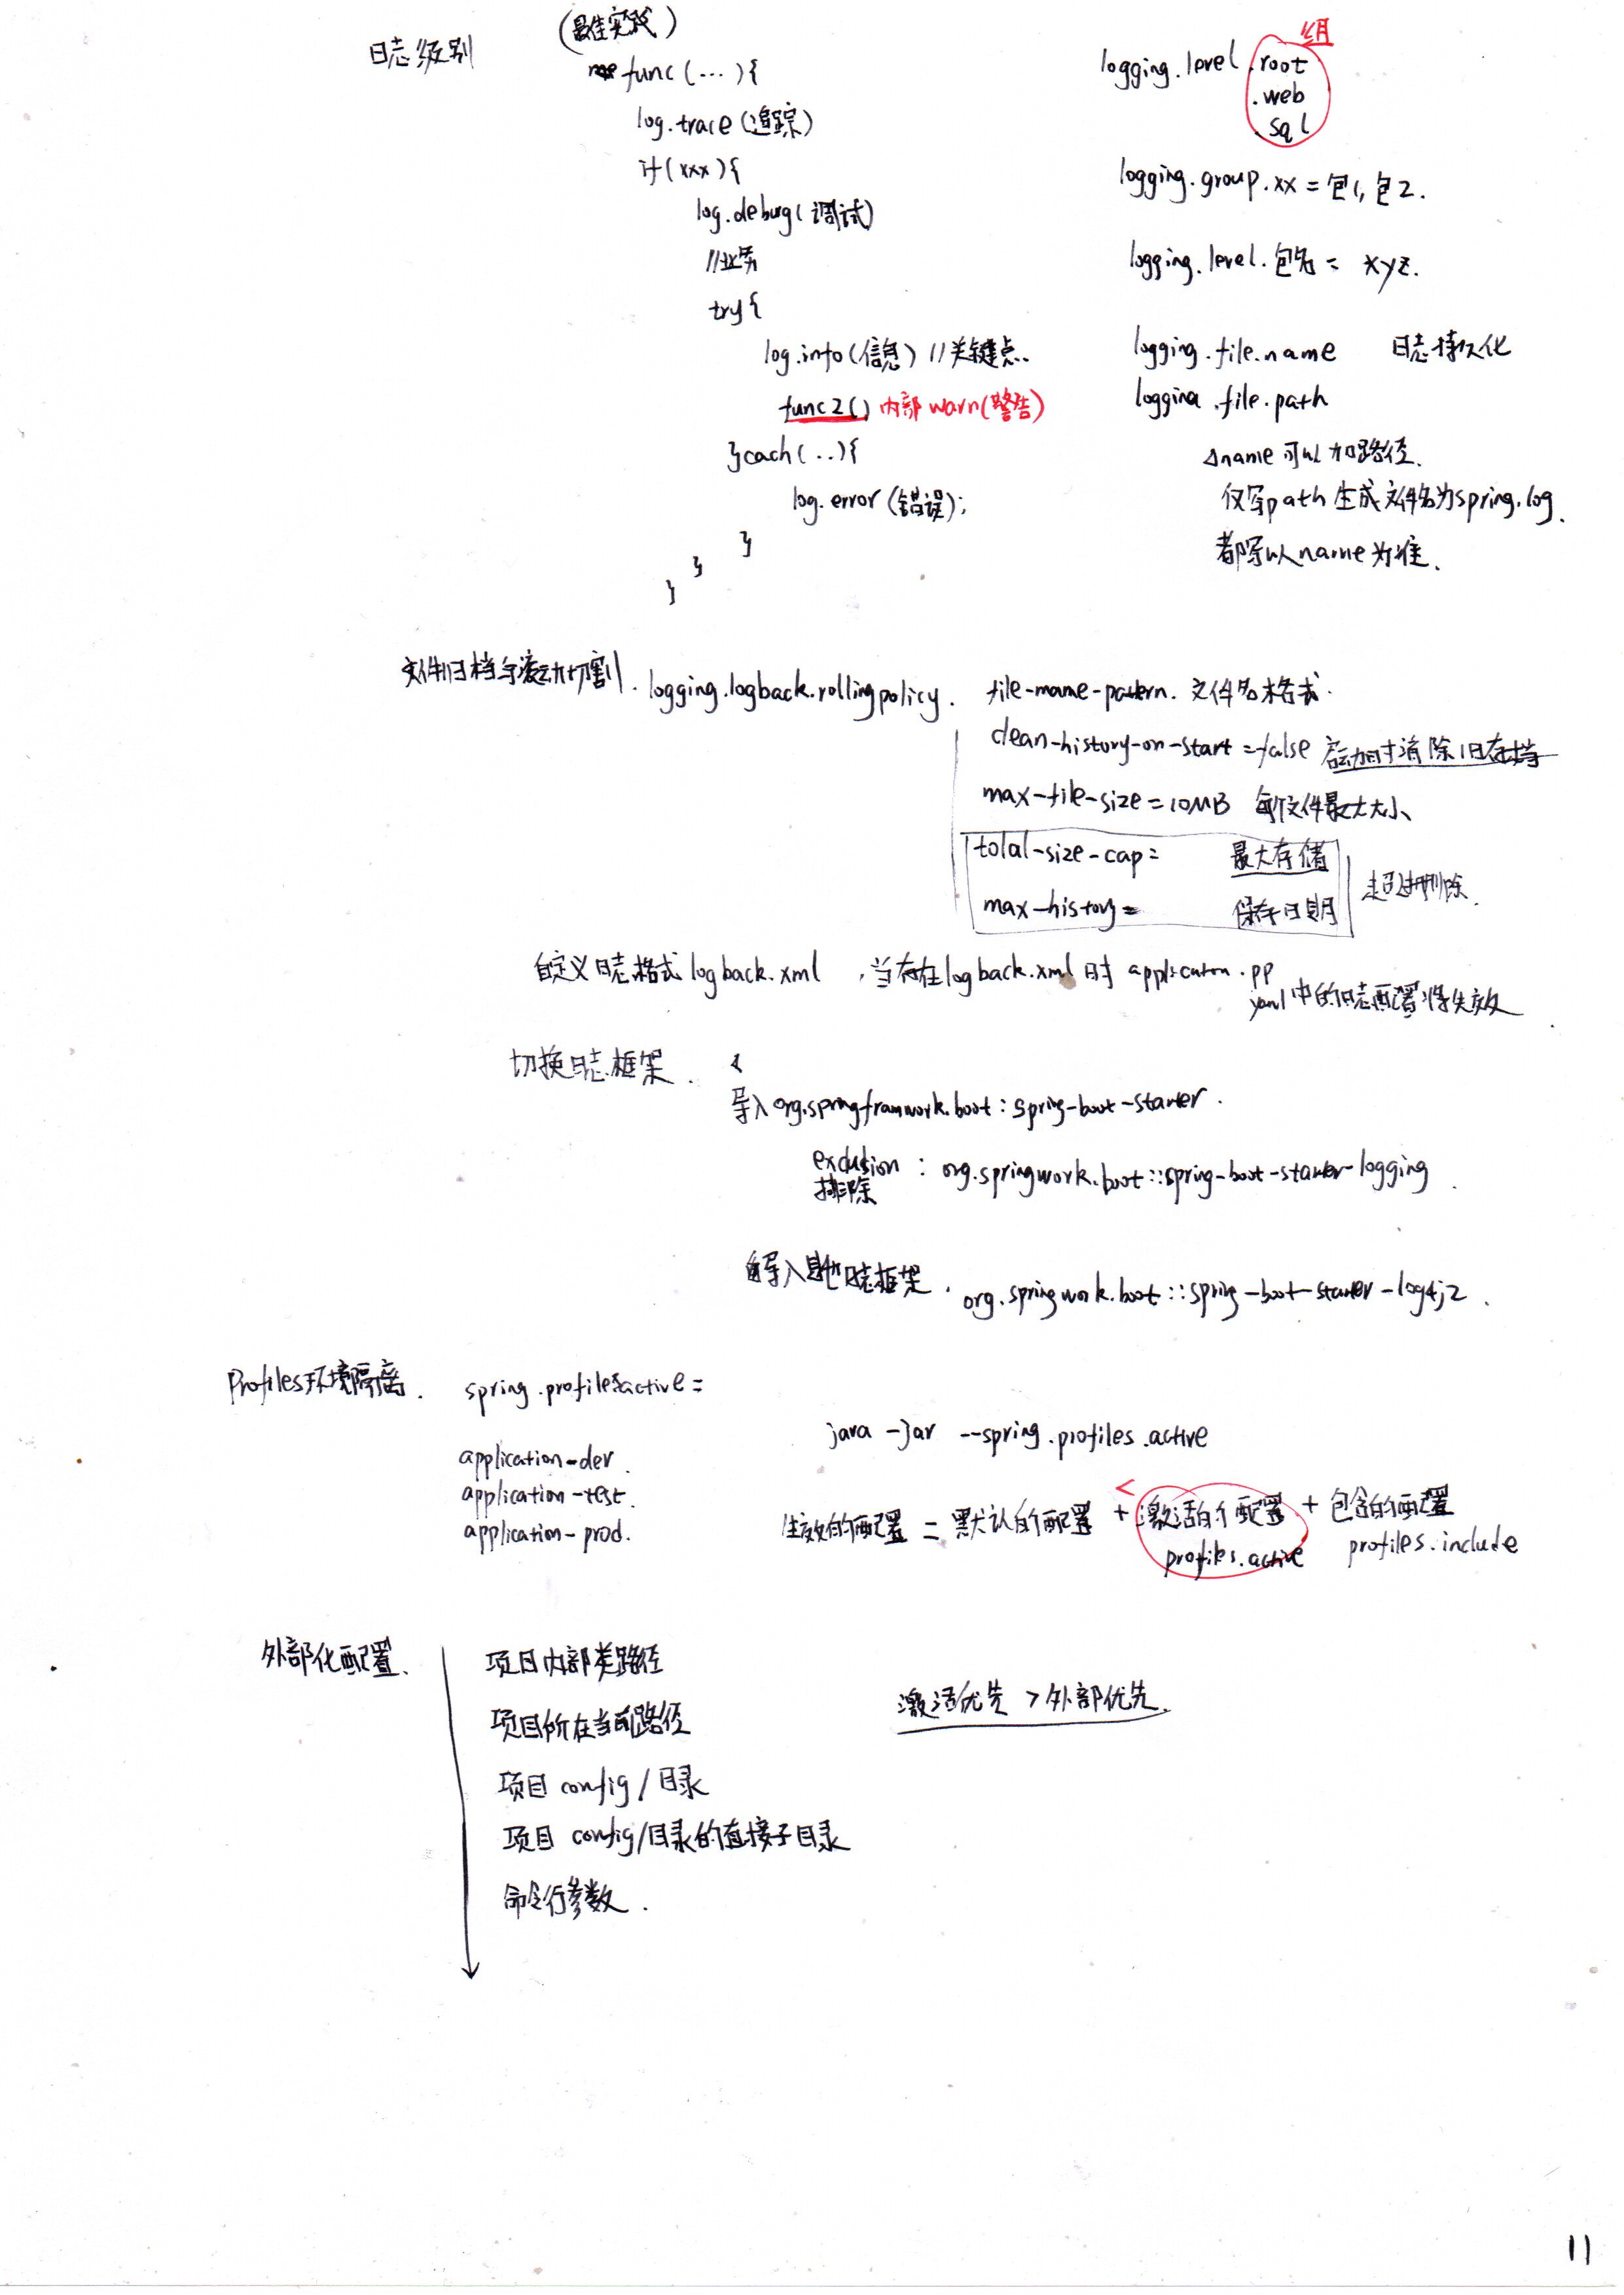 日志级别
(最佳实践)
func(...){
log.trace(追踪)
if(xxx){
log.debug(调试)
//业务
try{
log.info(信息) //关键点.
func2() 内部warn(警告)
}cach(..){
log.error(错误);
}
}
}
组
logging.level.root
.web
.sql
logging.group.xx=包1,包2.
logging.level.包名= xyz.
logging.file.name 日志持久化
logging.file.path
△name可以加路径.
仅写path生成文件名为spring.log.
都写以name为准.
文件归档与滚动切割. logging.logback.rollingpolicy. file-mame-pattern. 文件名格式.
clean-history-on-start=false 启动时清除旧存档
max-file-size=10MB 每个文件最大大小
total-size-cap= 最大存储
max-history= 保存日期
超过删除.
自定义日志格式logback.xml ,当存在logback.xml时 application.pp
yaml中的日志配置将失效
切换日志框架.
导入org.springframwork.boot:spring-boot-starter.
exclusion : org.springwork.boot::spring-boot-starter-logging.
排除
导入其他日志框架. org.springwork.boot::spring-boot-starter-log4j2.
Profiles环境隔离. spring.profiles.active=
java -jar --spring.profiles.active
application-dev.
application-test.
application-prod.
<
生效的配置 = 默认的配置 + 激活的配置 + 包含的配置
profiles.active profiles.include
外部化配置.
项目内部类路径
项目所在当前路径
项目 config/目录
项目 config/目录的直接子目录
命令行参数.
激活优先 > 外部优先.
11